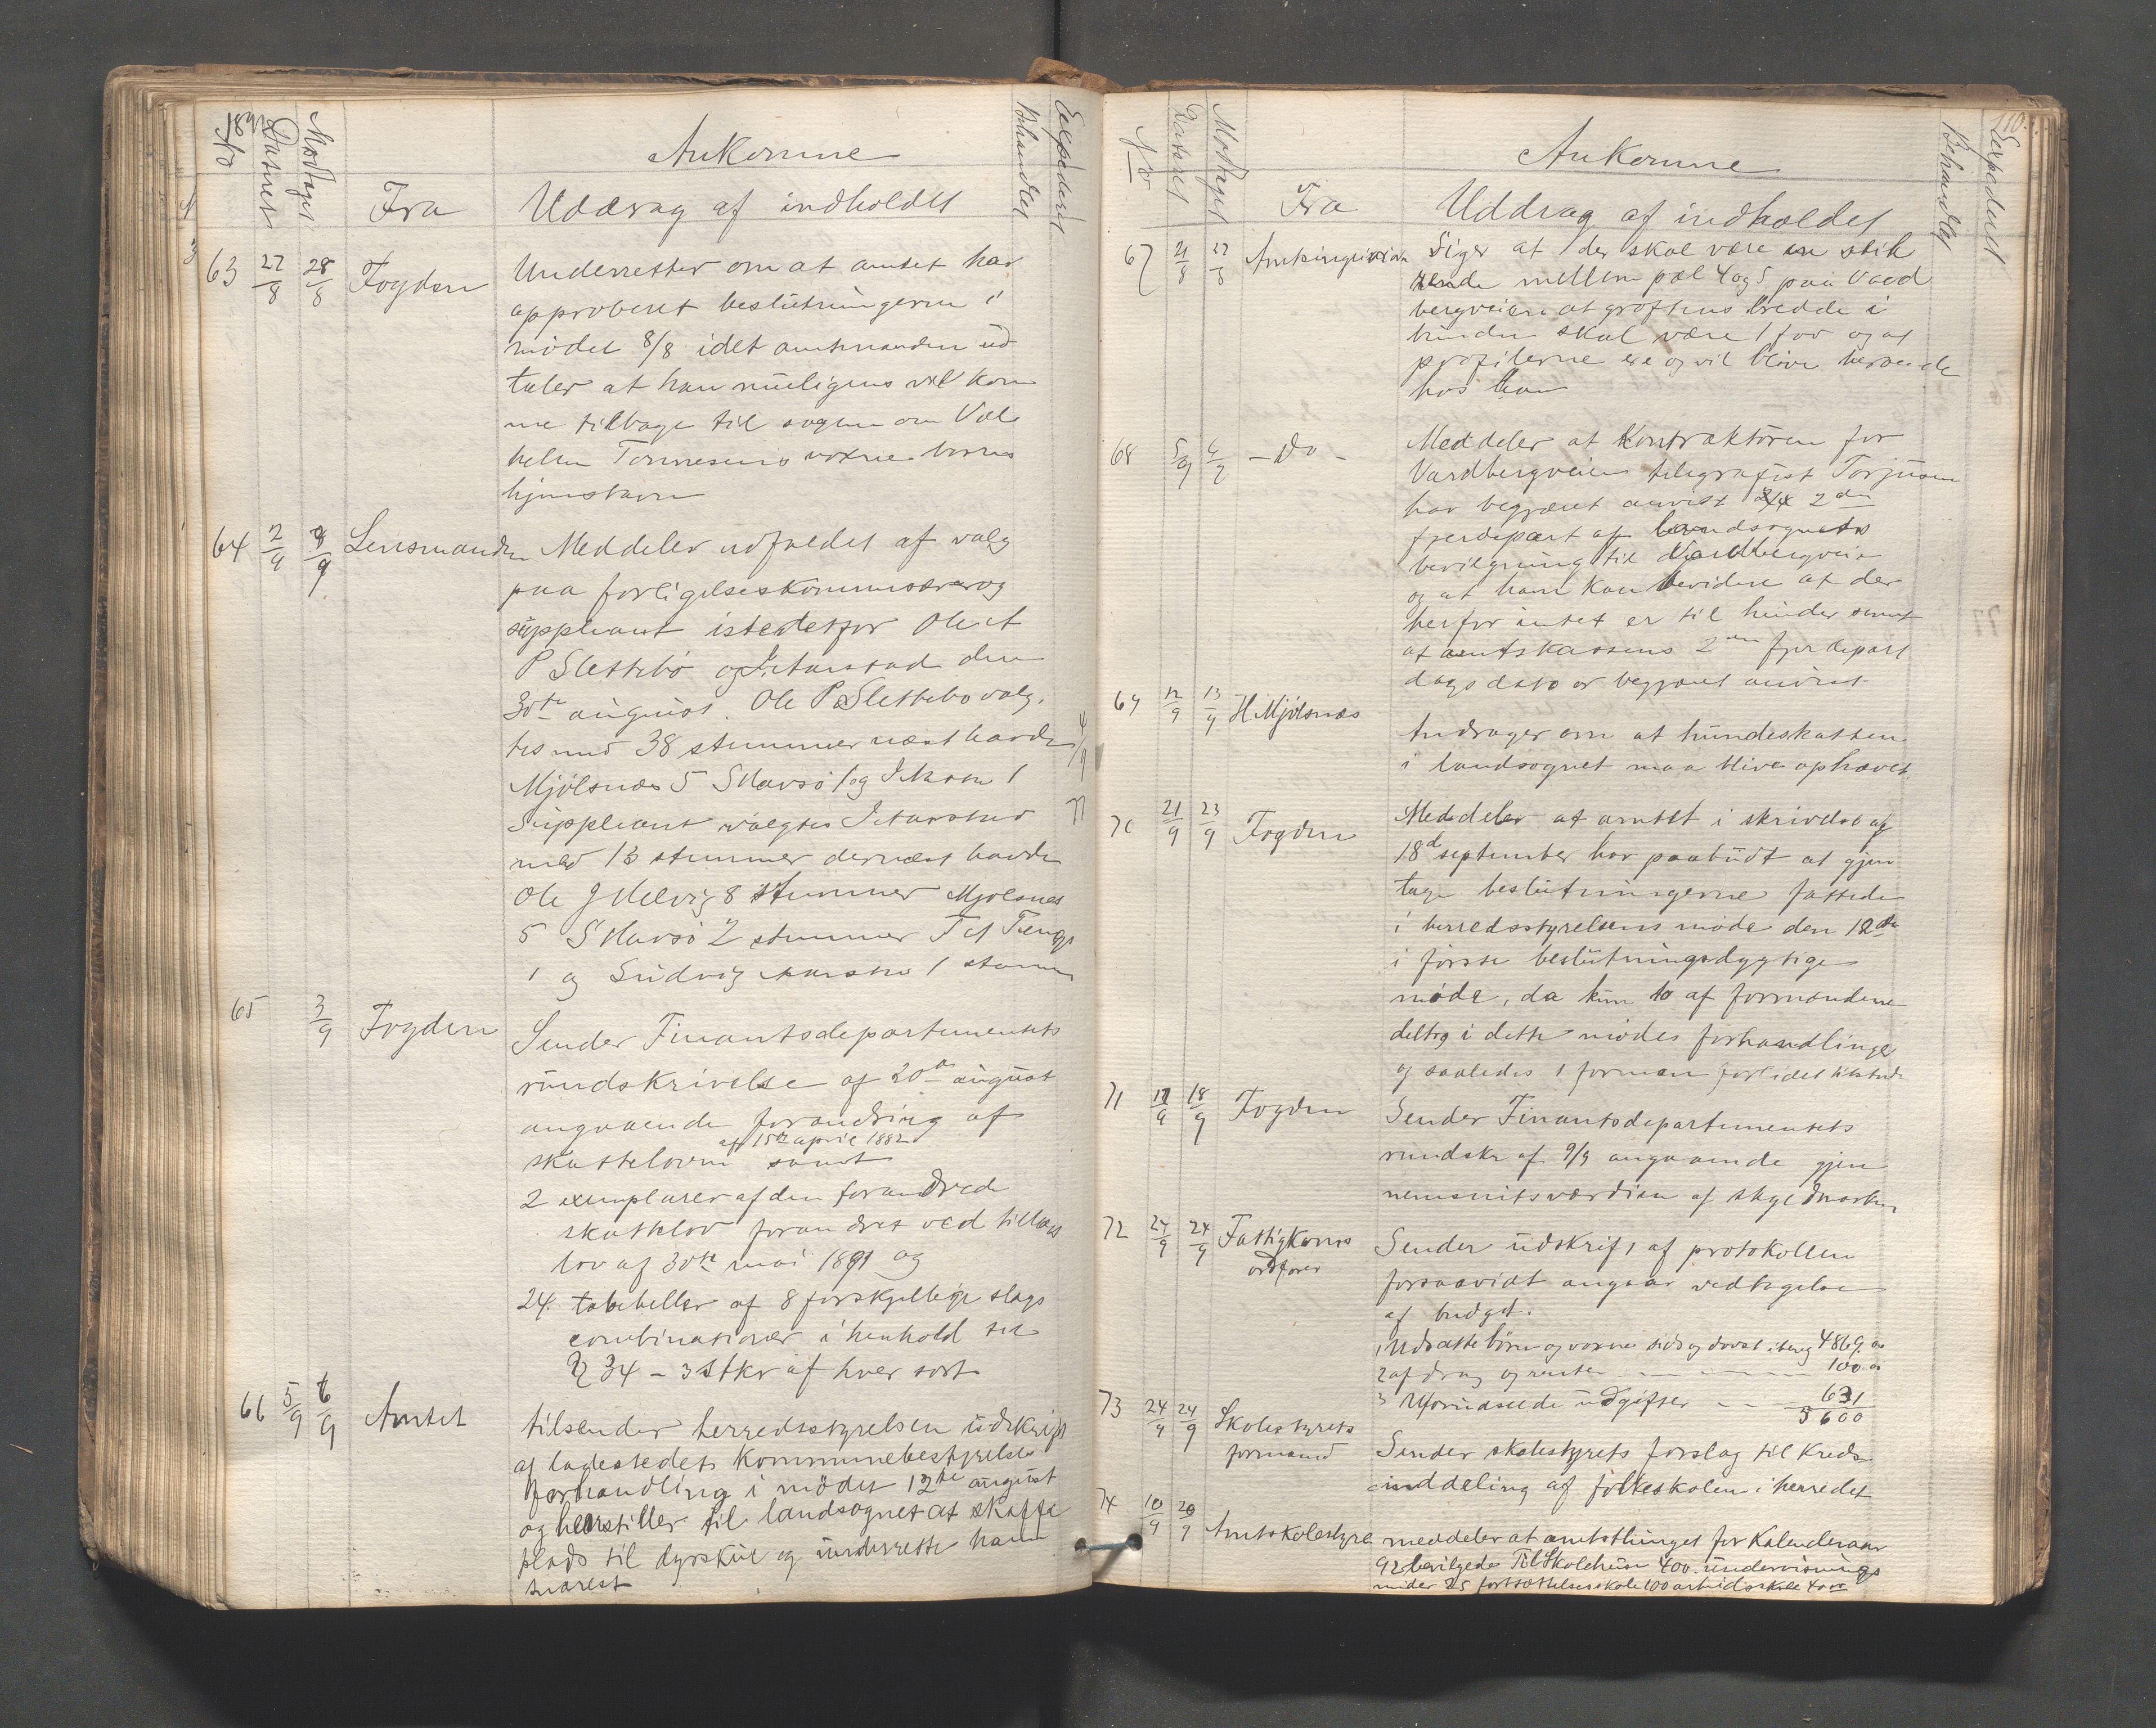 1891
No
Dateret
Modtaget
Ankomne
Behandlet
Expederet
Fra
Uddrag af indholdet
63 27/8 28/8 Fogden
Underretter om at amtet har
approberet beslutningerne i
mödet 8/8 idet amtmanden ud
taler at han muligens vil kom
me tilbage til sagen om Vil
helm Tønnesens voxne barns
hjemstavn
64 2/9 4/9 Lensmanden
Meddeler udfaldet af valg
paa forligelseskommisærer og
suppleant istedetfor Ole
P Slettebö og Aarstad den
30te august. Ole P Slettebo valg.
tes med 38 stemmer næst havde
Mjölsnes 5 S Havsö 1 og 1
4/9
Suppleant valgtes Aarstad
med 13 stemmer dernæst havde
Ole J Helvig 8 stemmer Mjølsnes
5 S Havsö 2 stemmer T Tengs
1 og Ludvig Aarstad 1 stemme
65 3/9 Fogden
Sender Finantsdepartementets
rundskrivelse af 20de august
angaaende forandring af
af 15de april 1882
skatteloven samt
2 exemplarer af den forandrede
skattelov forandret ved tillægs
lov af 30te mai 1891 og
24. tabebeller af 8 forskjellige slags
combinationer i henhold til
§ 34 - 3 stkr af hver sort
66 5/9 6/9 Amtet
tilsender herredsstyrelsen udskrift
af ladestedets kommunebestyrelses
forhandling i mödet 13de august
og henstiller til landsognet at skaffe
plads til dyrskue og underrette ham
snarest
110.
No
Dateret
Modtaget
Ankomne
Behandlet
Expederet
Fra
Uddrag af indholdet
67 21/8 22/8 Amtsingeniøren
Siger at der skal være en stik
rende mellem pæl 4 og 5 paa Vard
bergveien at gröftens bredde i
bunden skal være 1 fod og at
profilerne ere og vil blive beroende
hos ham
68 5/9 6/9 - Do -
Meddeler at Kontraktören for
Vardbergveien telegrafist Torjusen
har begjæret anvist 2den
fjerdepart af landsognets
bevilgning til Vardbergveien
og at han kan bevidne at der
herfor intet er til hinder samt
at amtskassens 2den fjerdepart
dags dato er begjæret anvist
69 12/9 13/9 H Mjölsnes
Andrager om at hundeskatten
i landsognet maa blive ophævet
70 21/9 23/9 Fogden
Meddeler at amtet i skrivelse af
18d september har paabudt at gjen
tage beslutningerne fattede
i herredsstyrelsens möde den 12te
i förste beslutningsdygtige
möde, da kun 10 af formændene
deltog i dette mödes forhandlinger
og saaledes 1 formand forlidet tilstede
71 17/9 18/9 Fogden
Sender Finantsdepartementets
rundskr af 9/9 angaaende gjen
nemsnitsværdien af skyldmarken
72 24/9 24/9 Fattigkoms
ordförer
Sender udskrift af protokollen
forsaavidt angaar vedtagelse
af budget.
1 Udsatte börn og voxne 4869. 00
2 afdrag og renter 100. 00
3 Uforudseede udgifter 631
5600
73 24/9 24/9 Skolestyrets
formand
Sender skolestyrets forslag til Kreds
inddeling af folkeskolen i herredet
74 10/9 20/9 Amtskolestyre
meddeler at amtsthinget for Kalenderaar
92 bevilgede Til Skolehuse 400. undervisnings
midler 25 fortsættelsesskole 100 arbeidsskole 40 00